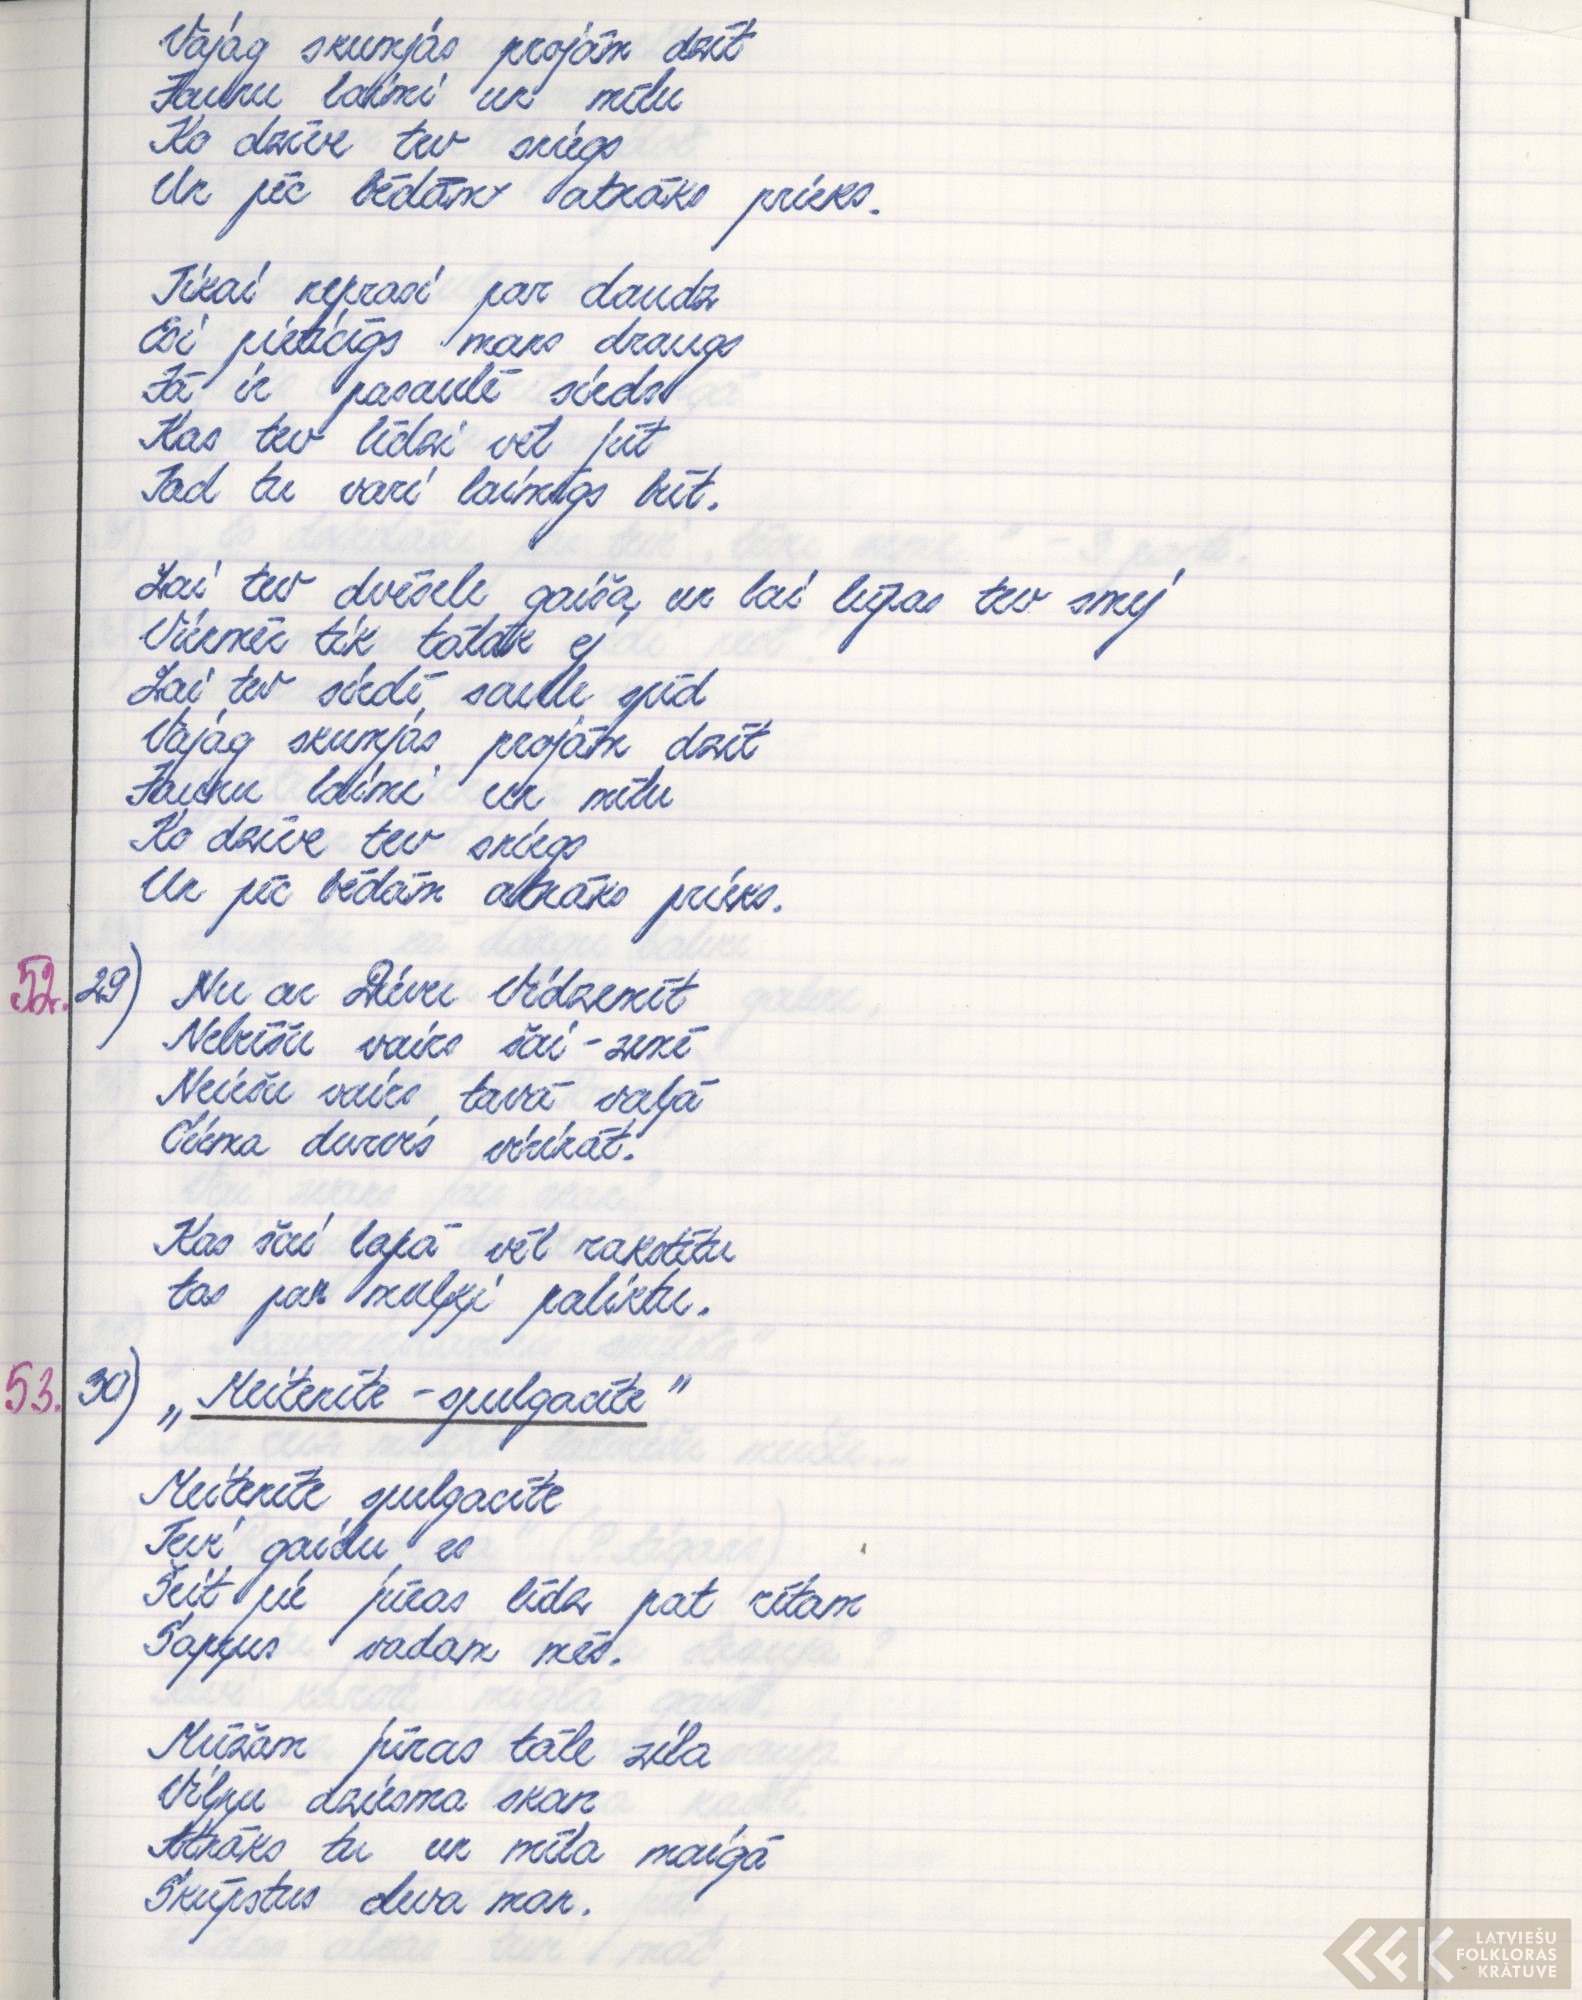 Vajag skumjas projām dzīt
Jaunu laimi un mīlu
Ko dzīve tev sniegs
Un pēc bēdām atnāks prieks.
Tikai neprasi par daudz
Esi pieticīgs mans draugs
Ja ir pasaulē sirds
Kas tev līdzi vēl jūt
Tad tu vari laimīgs būt.
Lai tev dvēsele gaiša un lai lūpas tev smej
Vienmēr tik tālāk ej
Lai tev sirdī saule spīd
Vajag skumjas projām dzīt
Jaunu laimi un mīlu
Ko dzīve tev sniegs
Un pēc bēdām atnāks prieks.
52. 29) Nu ar Dievu Vidzemīt
Nebūšu vairs šai-zemē
Neiešu vairs tavā vaļā
Ciema durvis virināt.
Kas šai lapā vēl rakstītu
tas par muļķi paliktu.
53. 30) „Meitenīte-spulgacīte"
Meitenīte spulgacīte
Tevi gaidu es
Šeit pie jūras līdz pat rītam
Sapņus vadam mēs.
Mūžam jūras tāle zila
Viļņu dziesma skan
Atnāks tu un mīla maigā
Skūpstus deva man.
LATVIEŠU
FOLKLORAS
KRĀTUVE